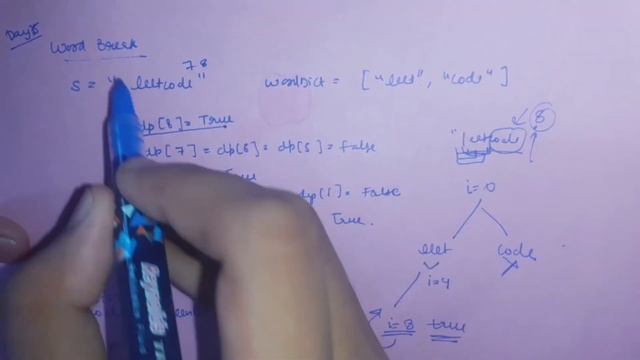 Word Break
7 8
s = "leetcode" wordDict = ["leet", "code"]
dp[8] = True
8
dp[7] = dp[6] = dp[5] = false
"leetcode
True
dp[1] = False
i=0
True.
leet code
i=4
i=8 true
Reynolds